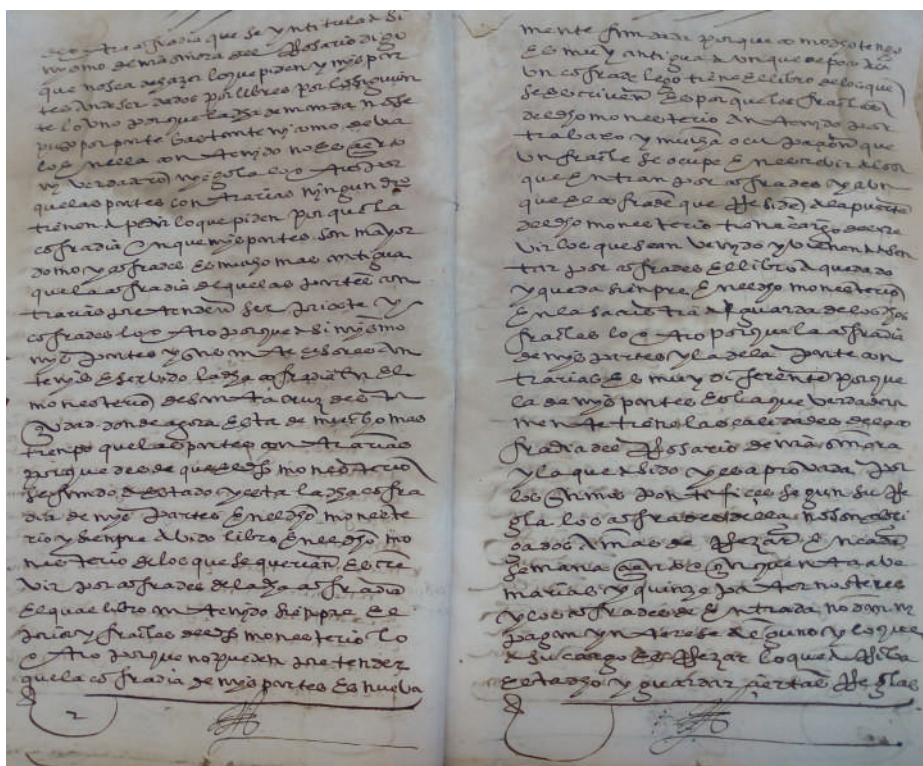 otra cofradia que se yntitula a si
mismo de nra señora del Rosario digo
que no se a de hazer lo que piden y mys par
tes an de ser dados por libres por lo siguien
te lo vno porque la dha demanda no se
puso por parte bastante ny como devia
lo en ella contenydo no es çierto
ny verdadero lo otro por
que las partes contrarias ningun dro
tienen a pedir lo que piden porque la
cofradia en que mys partes son mayor
domo y cofrades es mucho mas antigua
que la cofradia de que las partes con
trarias pretenden ser prioste y
cofrades lo otro porque asi mysmo
mys partes y
tenydo e servido la dha cofradia en el
monesterio de santa cruz desta
çiudad donde agora esta de mucho mas
tiempo que las partes contrarias
porque desde que el dho monesterio
se fundo a estado y esta la dha cofra
dia de mys partes en el dho moneste
rio y siempre a vido libro en el dho mo
nesterio de los que se querian escre
vir por cofrades de la dha cofradia
el qual libro an tenydo siempre el
prior y frailes del dho monesterio lo
otro porque no pueden pretender
que la cofradia de mys partes es nueva
2
mente fundada porque como dho tengo
es muy antigua aunque de poco aca
un cofrade lego tiene el libro de los que
se escriven es porque los frailes
del dho monesterio an tenydo por
trabajo y mucha ocupaçion que
un fraile se ocupe en escrevir a los
que entran por cofrades y aun
que el cofrade que Reside a la puerta
del dho monesterio tiene a cargo de escre
vir los que sean venydo y vienen a asen
tar por cofrades el libro a quedado
y queda siempre en el dho monesterio
en la sacristia guarda de los dhos
frailes lo otro porque la cofradia
de mys partes y la de la parte con
traria es muy diferente porque
la de mys partes es la que verdadera
mente tiene las calidades de la co
fradia del Rosario de nra señora
y la que a sido y es aprovada por
los sumos pontifices segun su Re
gla los cofrades della no son obli
gados a mas de Rezar en cada
semana çiento çinquenta abe
marias y quinze paternosteres
y los cofrades de entrada no dan ny
pagan ynterese alguno y lo que
a su cargo es Rezar lo que a Riba
esta dho y guardar çiertas Reglas